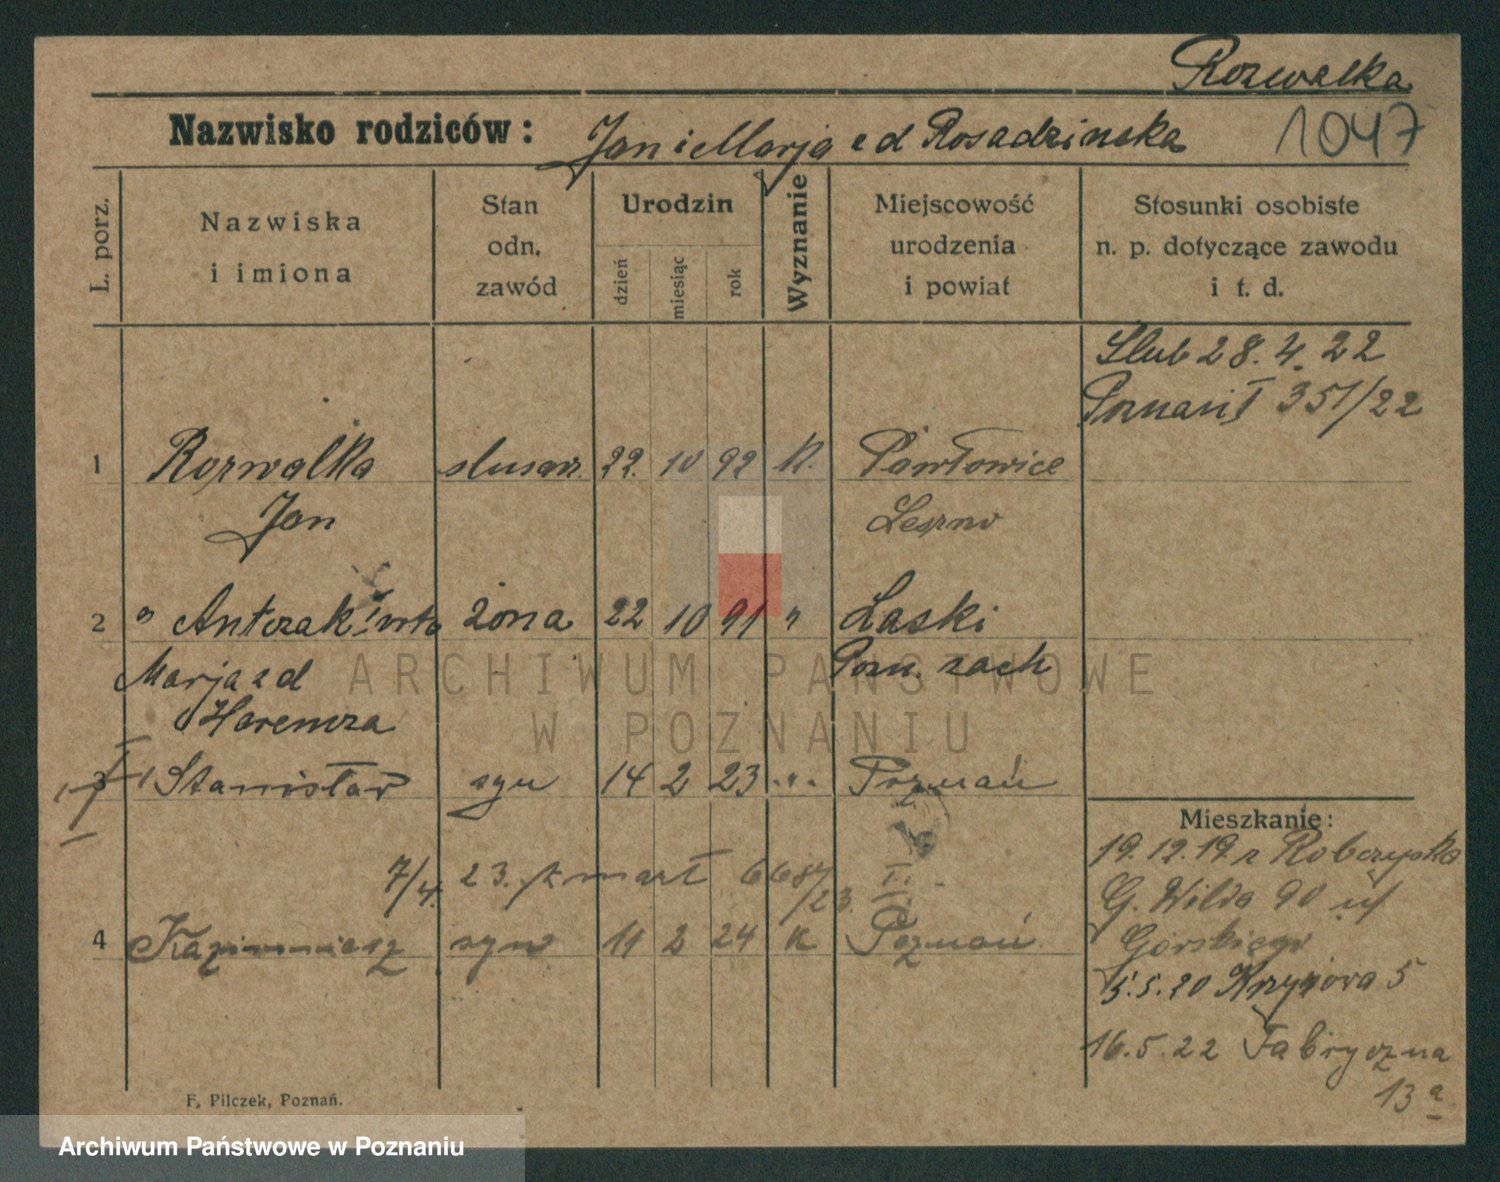 Rozwalka
1047
Nazwisko rodziców: Jan i Marja z d Rosadzinska
L. porz.
Nazwiska
i imiona
Stan
odn.
zawód
Urodzin
dzień
miesiąc
rok
Wyznanie
Miejscowość
urodzenia
i powiat
Stosunki osobiste
n. p. dotyczące zawodu
i t. d.
Slub 28. 4. 22
Poznań I 351/22
1 Rozwalka slusarz. 22. 10 92 K. Pawłowice
Jan Leszno
2 " Antczak żona 22 10 91 " Łaski
Marja z d Pozn. zach
Haremza
3 Stanisław syn 14 2 23 " Poznań
Mieszkanie:
19.12.19 z Robczyska
7/4. 23. zmarł 668/23 I.
G. Wilda 90 u/
4 Kazimierz syn 11 2 24 K Poznań
Górskiego
5.5.20 Krzyżowa 5
16.5.22 Fabryczna
13 a
F. Pilczek, Poznań.
ARCHIWUM PAŃSTWOWE
W POZNANIU
Archiwum Państwowe w Poznaniu